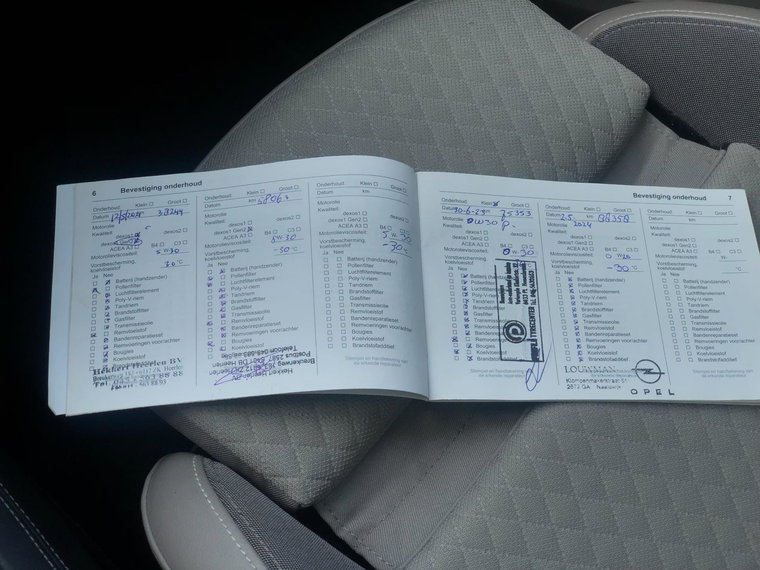 6 Bevestiging onderhoud
Onderhoud: Klein ☐ Groot ☐
Datum
Motorolie
Kwaliteit:
dexos1 dexos2 ☐
dexos1 Gen2
ACEA A3 ☐ B4 ☐ C3 ☐
Motorolieviscositeit 5 W-30
Vorstbescherming,
koelvloeistof -30 °C
Ja Nee
Batterij (handzender)
Pollenfilter
Luchtfilterelement
Poly-V-riem
Tandriem
Brandstoffilter
Gasfilter
Transmissieolie
Remvloeistof
Bandenreparatieset
Remvoeringen voor/achter
Bougies
Koelvloeistof
Hekkert Heerlen BV
Onderhoud: Klein Groot ☐
Datum km
Motorolie
Kwaliteit:
dexos1 ☐ dexos2 ☐
dexos1 Gen2
ACEA A3 ☐ B4 ☐ C3 ☐
Motorolieviscositeit 5 W-30
Vorstbescherming,
koelvloeistof -30 °C
Ja Nee
Batterij (handzender)
Pollenfilter
Luchtfilterelement
Poly-V-riem
Tandriem
Brandstoffilter
Gasfilter
Transmissieolie
Remvloeistof
Bandenreparatieset
Remvoeringen voor/achter
Bougies
Koelvloeistof
Onderhoud: Klein ☐ Groot ☐
Datum km
Motorolie
Kwaliteit:
dexos1 ☐ dexos2 ☐
dexos1 Gen2 ☐
ACEA A3 ☐ B4 ☐ C3 ☐
Motorolieviscositeit 5 W-30
Vorstbescherming,
koelvloeistof -30 °C
Ja Nee
Batterij (handzender)
Pollenfilter
Luchtfilterelement
Poly-V-riem
Tandriem
Brandstoffilter
Gasfilter
Transmissieolie
Remvloeistof
Bandenreparatieset
Remvoeringen voor/achter
Bougies
Koelvloeistof
Brandstofadditief
Stempel en handtekening van
de erkende reparateur
Bevestiging onderhoud 7
Onderhoud: Klein Groot ☐
Datum 30-6-23 75353
Motorolie 0W30
Kwaliteit:
dexos1 ☐ dexos2 ☐
dexos1 Gen2 ☐
ACEA A3 ☐ B4 ☐ C3 ☐
Motorolieviscositeit 0 W-30
Vorstbescherming,
koelvloeistof
Ja Nee
Batterij (handzender)
Pollenfilter
Luchtfilterelement
Poly-V-riem
Tandriem
Brandstoffilter
Gasfilter
Transmissieolie
Remvloeistof
Bougies
Koelvloeistof
Brandstofadditief
Onderhoud: Klein ☐ Groot ☐
Datum km 88358
Motorolie 2024
Kwaliteit:
dexos1 ☐ dexos2 ☐
dexos1 Gen2 ☐
ACEA A3 ☐ B4 ☐ C3 ☐
Motorolieviscositeit 0 W-20
Vorstbescherming,
koelvloeistof -30 °C
Ja Nee
Batterij (handzender)
Pollenfilter
Luchtfilterelement
Poly-V-riem
Tandriem
Brandstoffilter
Gasfilter
Transmissieolie
Remvloeistof
Bandenreparatieset
Remvoeringen voor/achter
Bougies
Koelvloeistof
Brandstofadditief
LOUWMAN
Klompenmakerstraat 51
2672 GA Naaldwijk
OPEL
Onderhoud: Klein ☐ Groot ☐
Datum km
Motorolie
Kwaliteit:
dexos1 ☐ dexos2 ☐
dexos1 Gen2 ☐
ACEA A3 ☐ B4 ☐ C3 ☐
Motorolieviscositeit W-
Vorstbescherming,
koelvloeistof °C
Ja Nee
Batterij (handzender)
Pollenfilter
Luchtfilterelement
Poly-V-riem
Tandriem
Brandstoffilter
Gasfilter
Transmissieolie
Remvloeistof
Bandenreparatieset
Remvoeringen voor/achter
Bougies
Koelvloeistof
Brandstofadditief
Stempel en handtekening van
de erkende reparateur